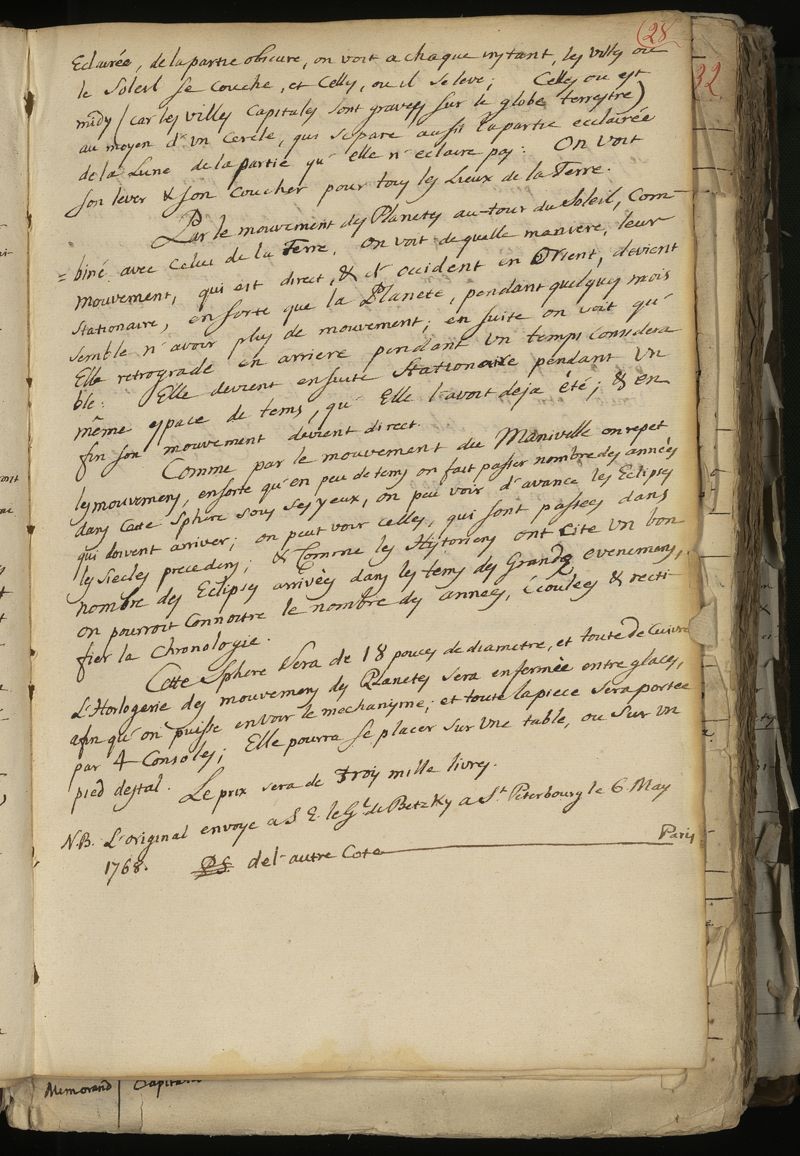 28
32
Eclairée, de la partie obscure, on voit a chaque instant, les villes ou
le Soleil se couche, et Celles, ou il se leve; Celles ou est
midy (car les villes Capitales sont gravees sur le globe terrestre)
au moyen d'un Cercle, qui separe aussi la partie ecclairée
de la Lune de la partie qu'elle n'eclaire pas: On voit
son lever & son coucher pour tous les Lieux de la Terre.
Par le mouvement des Planetes au-tour du Soleil, Com-
= biné avec Celui de la Terre, on voit de quelle maniere, leur
mouvement, qui est direct, & d'occident en Orient, devient
Stationaire, en sorte que la Planete, pendant quelques mois
semble n'avoir plus de mouvement; en suite on voit qu'
Elle retrograde en arriere pendant un temps considera
ble: Elle devient ensuite Stationaire pendant un
même espace de tems, qu'Elle l'avoit deja été; & en
fin son mouvement devient direct.
Comme par le mouvement du Manivelle on repet
les mouvemens, ensorte qu'en peu de tems on fait passer nombre des années
dans Cette Sphere sous ses yeux, on peu voir d'avance les Eclipses
qui doivent arriver; on peut voir celles, qui sont passées dans
les siecles precedens; & Comme les Historiens ont Cite un bon
nombre des Eclipses arrivées dans les tems des Grands evenemens,
on pourroit Connoitre le nombre des années, Ecoulées & recti-
fier la Chronologie.
Cette Sphere sera de 18 pouces de diametre, et toute de Cuivre
L'Horlogerie des mouvemens des Planetes sera enfermée entre glaces,
afin qu'on puisse en voir le mechanisme; et toute la piece sera portée
par 4 Consoles; Elle pourra se placer sur une table, ou sur un
pied destal. Le prix sera de Trois mille livres.
N.B. L'original envoye a S E. le Gl. de Betzky a St. Peterbourg le 6. May
1768. PS. de l'autre Cote Paris
Memorand Capital